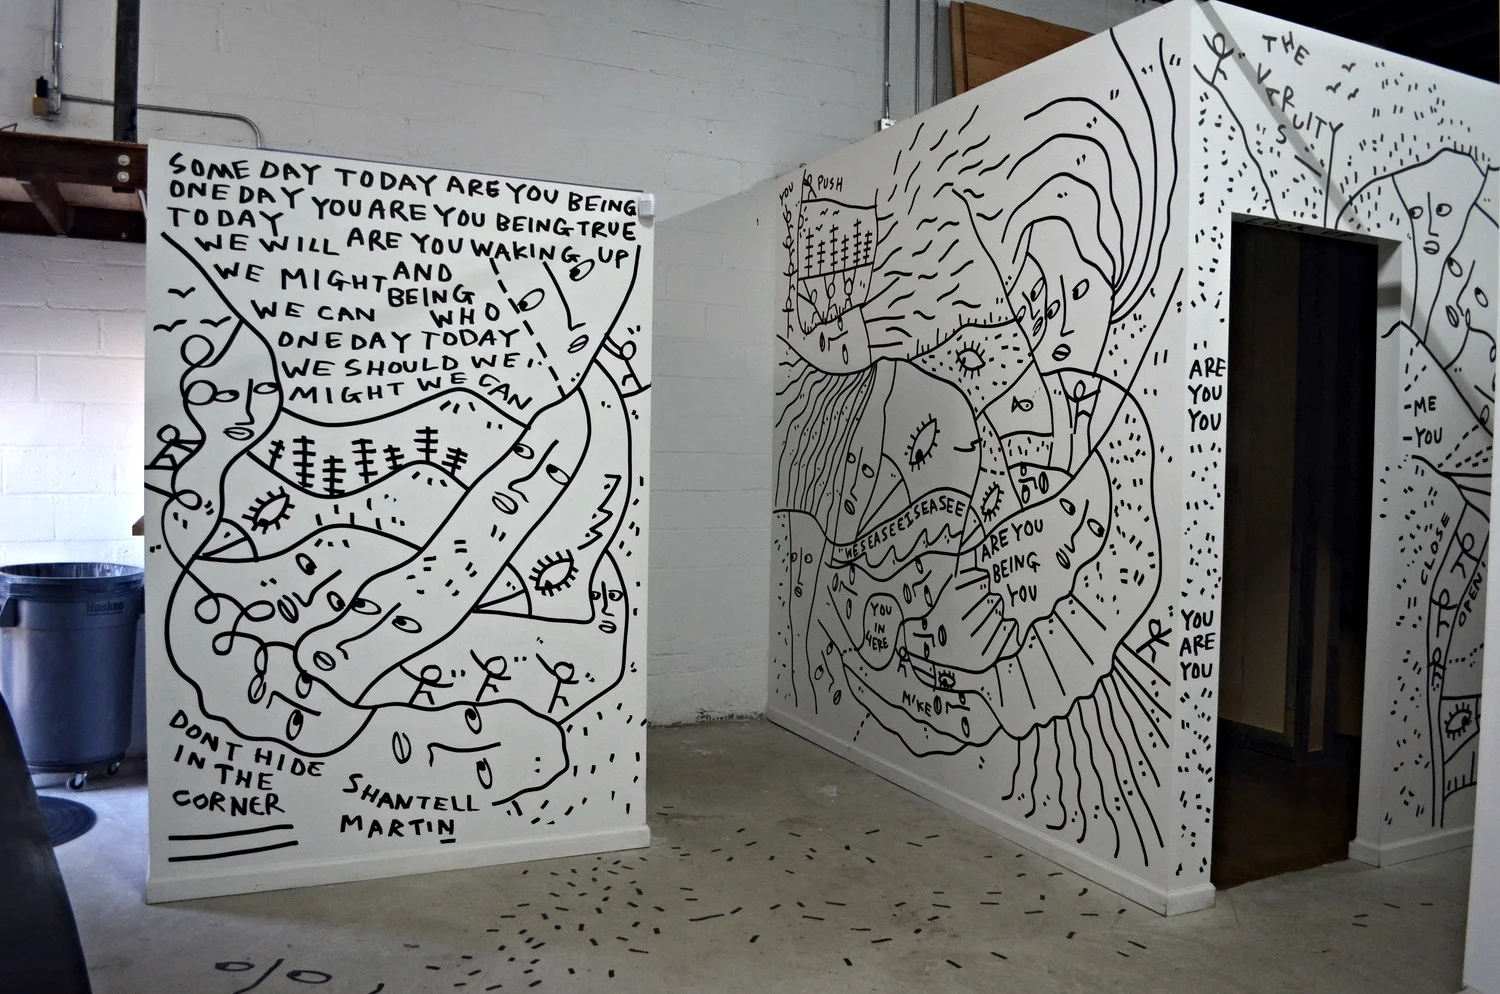 SOME DAY TODAY ARE YOU BEING
ONE DAY YOU ARE YOU BEING TRUE
TODAY
WE WILL ARE YOU WAKING UP
WE MIGHT AND
BEING
WE CAN WHO
ONE DAY TODAY
WE SHOULD WE
MIGHT WE CAN
DONT HIDE
IN THE
CORNER
SHANTELL
MARTIN
Huskee
YOU
PUSH
WESEASEEISEASEE
ARE YOU
BEING
YOU
YOU
IN
HERE
MIKE
ARE
YOU
YOU
YOU
ARE
YOU
THE
-ME
-YOU
CLOSE
OPEN